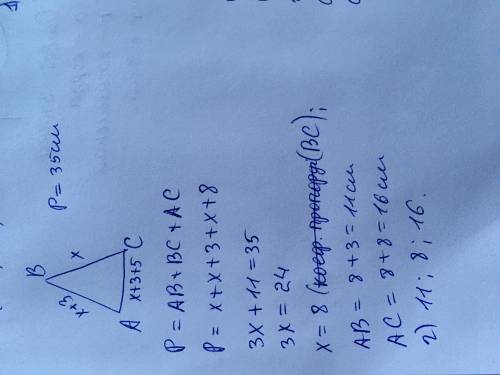 B
P = 35 см
x+3
x
A
x+3+5
C
P = AB + BC + AC
P = x + x + 3 + x + 8
3x + 11 = 35
3x = 24
x = 8 (коеф. пропорц (BC);
AB = 8 + 3 = 11 см
AC = 8 + 8 = 16 см
2) 11; 8; 16.